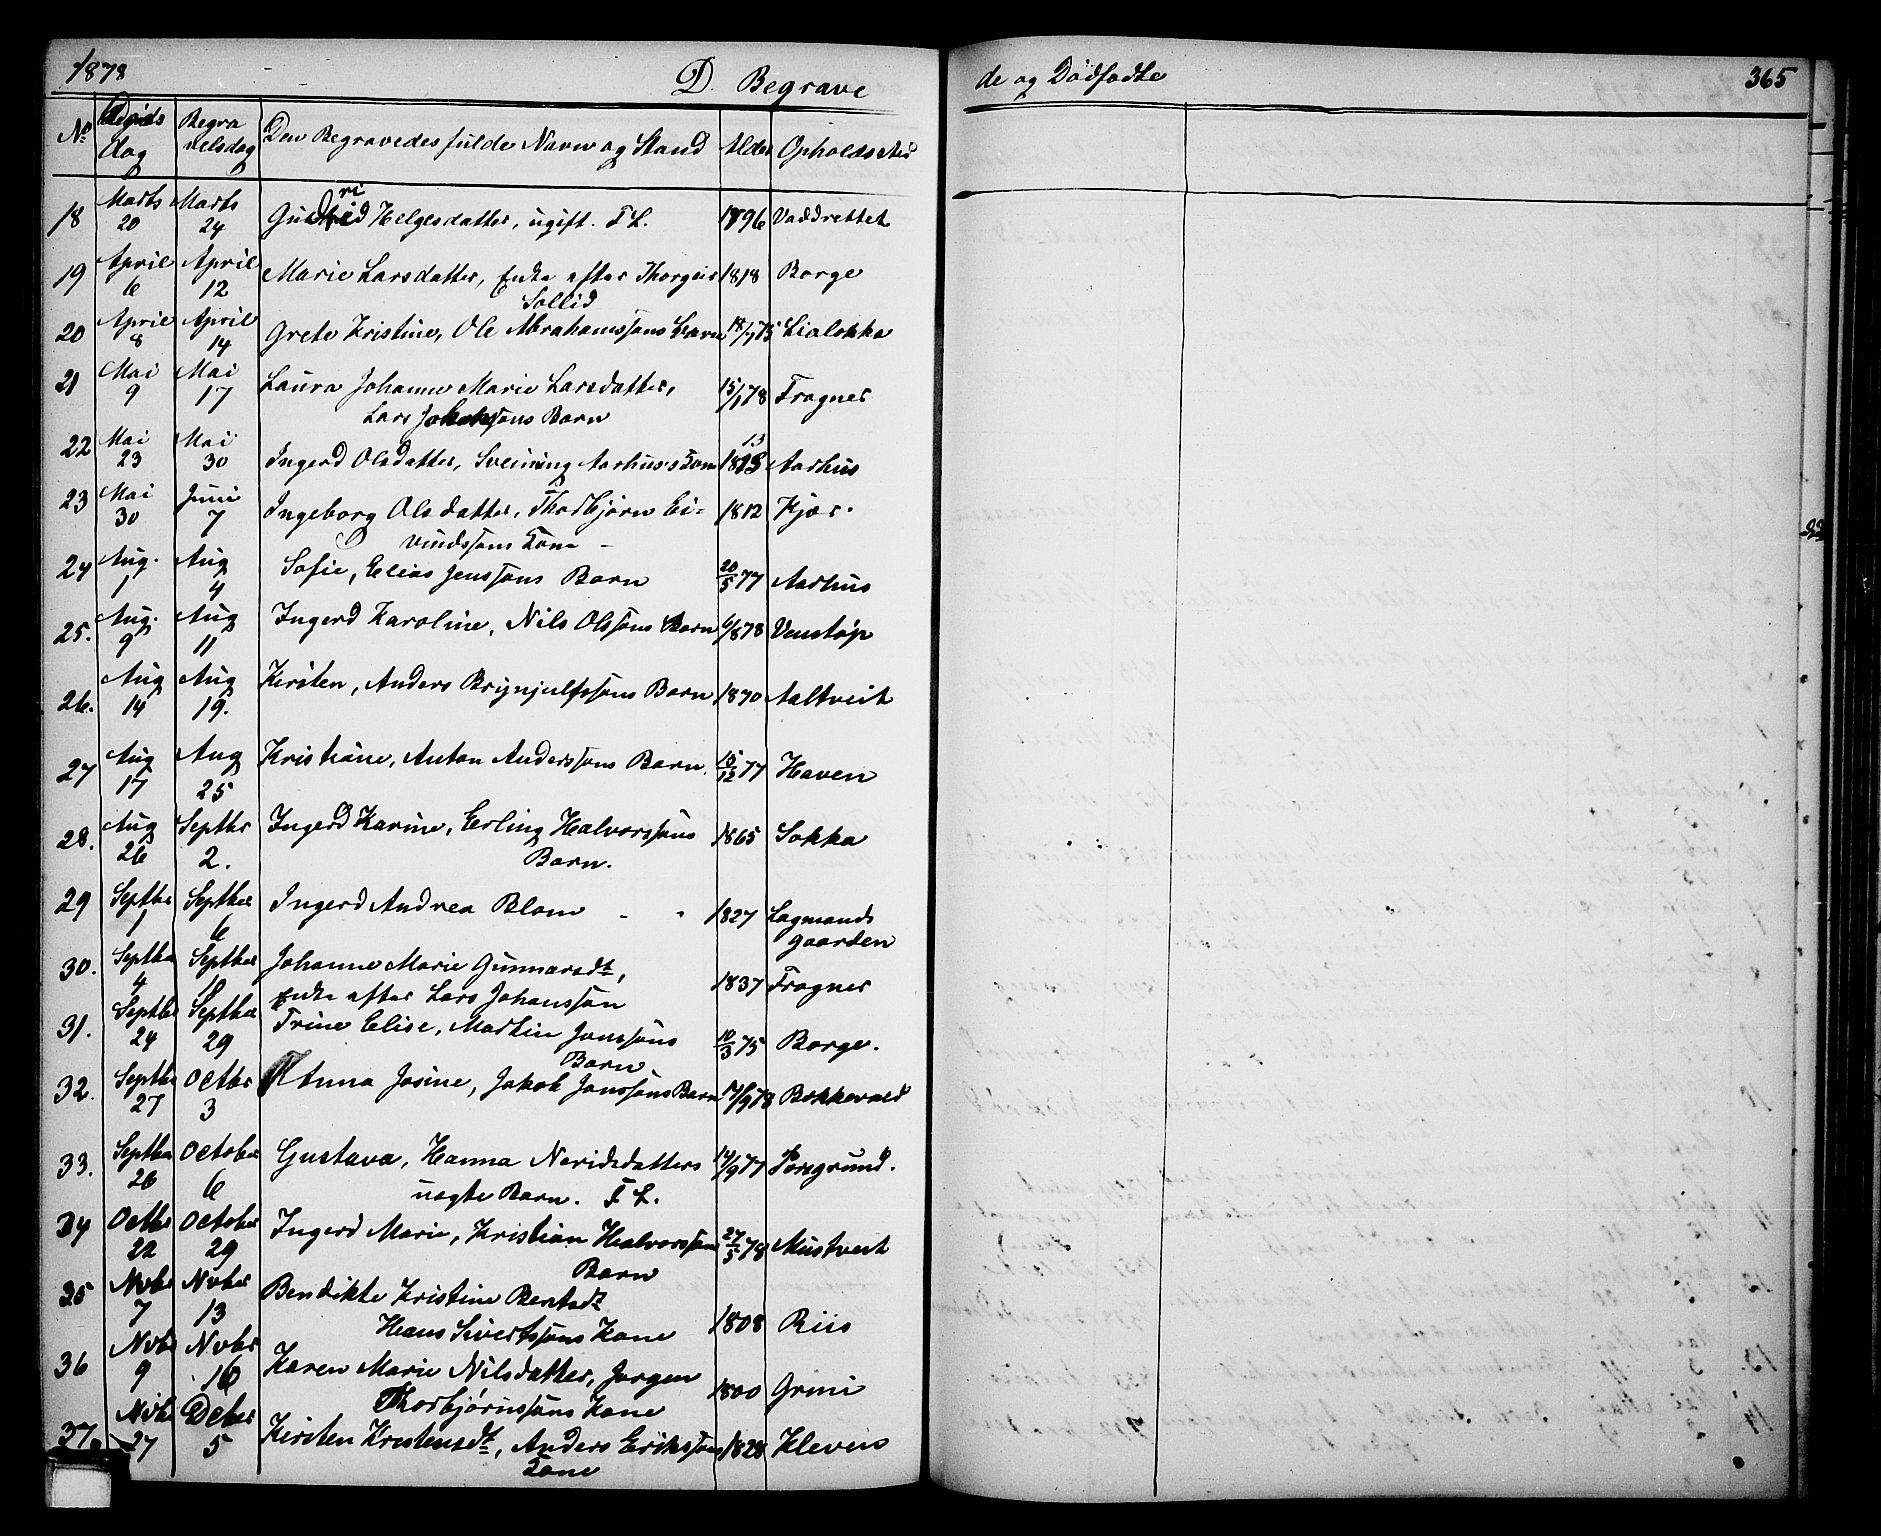 1878 D. Begrave de og Dødfødte 365
No Døds dag Begra velsdag Den Begravedes fulde Navn og Stand Alder Opholdssted
18 Marts 20 Marts 24 Gudrid Helgesdatter, ugift. F L. 1796 Vaddrettet
19 April 6 April 12 Marie Larsdatter, Enke efter Thorgeir 1818 Borge
Sollid
20 April 8 April 14 Grete Kristine, Ole Abrahamssøns Barn 75 Lialøkka
21 Mai 9 Mai 17 Laura Johanne Marie Larsdatter, 15/1 78 Frogner
Lars Johanssøns Barn
22 Mai 23 Mai 30 Ingerd Olsdatter, Sveinung Aarhus's Kone 1813 Aarhus
23 Mai 30 Juni 7 Ingeborg Olsdatter, Thorbjørn Ei- 1812 Kjær.
vindssøns Kone
24 Aug. 1 Aug 4 Sofie, Elias Jenssøns Barn 20/5 77 Aarhus
25. Aug. 9 Aug 11 Ingerd Karoline, Nils Olssøns Barn 6/8 78 Venstøp
26. Aug 14 Aug 19. Kirsten, Anders Brynjulfssøns Barn 1870 Aaltveit
27 Aug 17 Aug 25 Kristiane, Anton Anderssøns Barn. 77 Haven
28. Aug 26 Septbr 2. Ingerd Karine, Erling Halvorssøns 1865 Løkka
Barn.
29 Septbr 1 Septber 6 Ingerd Andrea Blom 1827 Lagmands
gaarden
30. Septbr 4 Septber Johanne Marie Gunnarsdt, 1837 Frogner
Enke efter Lars Johanssøn
31. Septbr 24 Septbr 29 Trine Elise, Martin Jonssøns 10/3 75 Borge.
Barn
32. Septbr 27 Octbr 3 Anna Josine, Jakob Jonssøns Barn 78 Bakkevald
33. Septbr 26 October 6 Gustava, Hanna Neridsdatters 14/9 77 Porsgrund.
uægte Barn. F L.
34 Octbr 22 October 29 Ingerd Marie, Kristian Halvorssøns 27/5 78 Mustveit
Barn
35 Nvbr 7 Nvber 13 Bendikte Kristine Bentsdt
Hans Sivertssøns Kone 1808 Riis
36 Nvbr 9 Nvbr 16 Karen Marie Nilsdatter, Jørgen 1800 Grini
Thorbjørnssøns Kone
37. Nvbr 27 Dcber 5 Kirsten Kristensdt, Anders Erikssøns 1828 Kleven
Kone